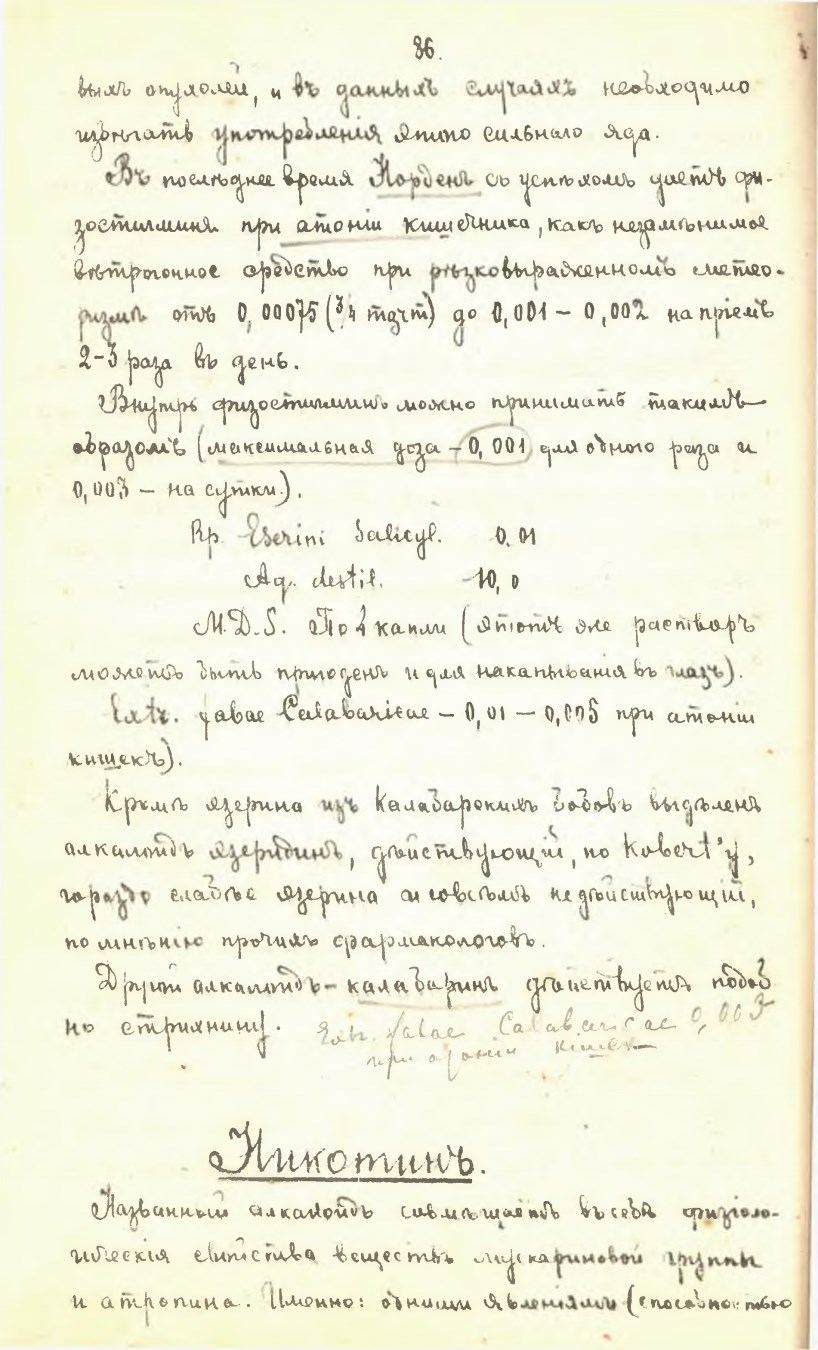 86.
выхъ опухолей, и въ данныхъ случаяхъ необходимо
избѣгать употребленія этого сильнаго яда.
Въ послѣднее время Норденъ съ успѣхомъ даетъ фи-
зостигминъ при атоніи кишечника, какъ незамѣнимое
вѣтрогонное средство при рѣзковыраженномъ метео-
ризмѣ отъ 0,00075 (3/4 mgrm) до 0,001 – 0,002 на пріемъ
2-3 раза въ день.
Внутрь физостигминъ можно принимать такимъ
образомъ (максимальная доза – 0,001 для одного раза и
0,003 – на сутки).
Rp. Eserini Salicyl. 0,01
Aq. destil. 10,0
M.D.S. По 4 капли (этотъ же растворъ
можетъ быть пригоденъ и для накапыванія въ глазъ).
Extr. fabae Calabaricae – 0,01 – 0,005 при атоніи
кишекъ).
Кромѣ эзерина изъ Калабарскихъ бобовъ выдѣленъ
алкалоидъ эзеридинъ, дѣйствующій, по Kobert'у,
гораздо слабѣе эзерина и совсѣмъ недѣйствующій,
по мнѣнію прочихъ фармакологовъ.
Другой алкалоидъ – калабаринъ дѣйствуетъ подоб
но стрихнину. Extr. fabae Calabaricae 0,003
при атоніи кишекъ
Никотинъ.
Названный алкалоидъ совмѣщаетъ въ себѣ физіоло-
гическія свойства веществъ мускариновой группы
и атропина. Именно: одними явленіями (способностью